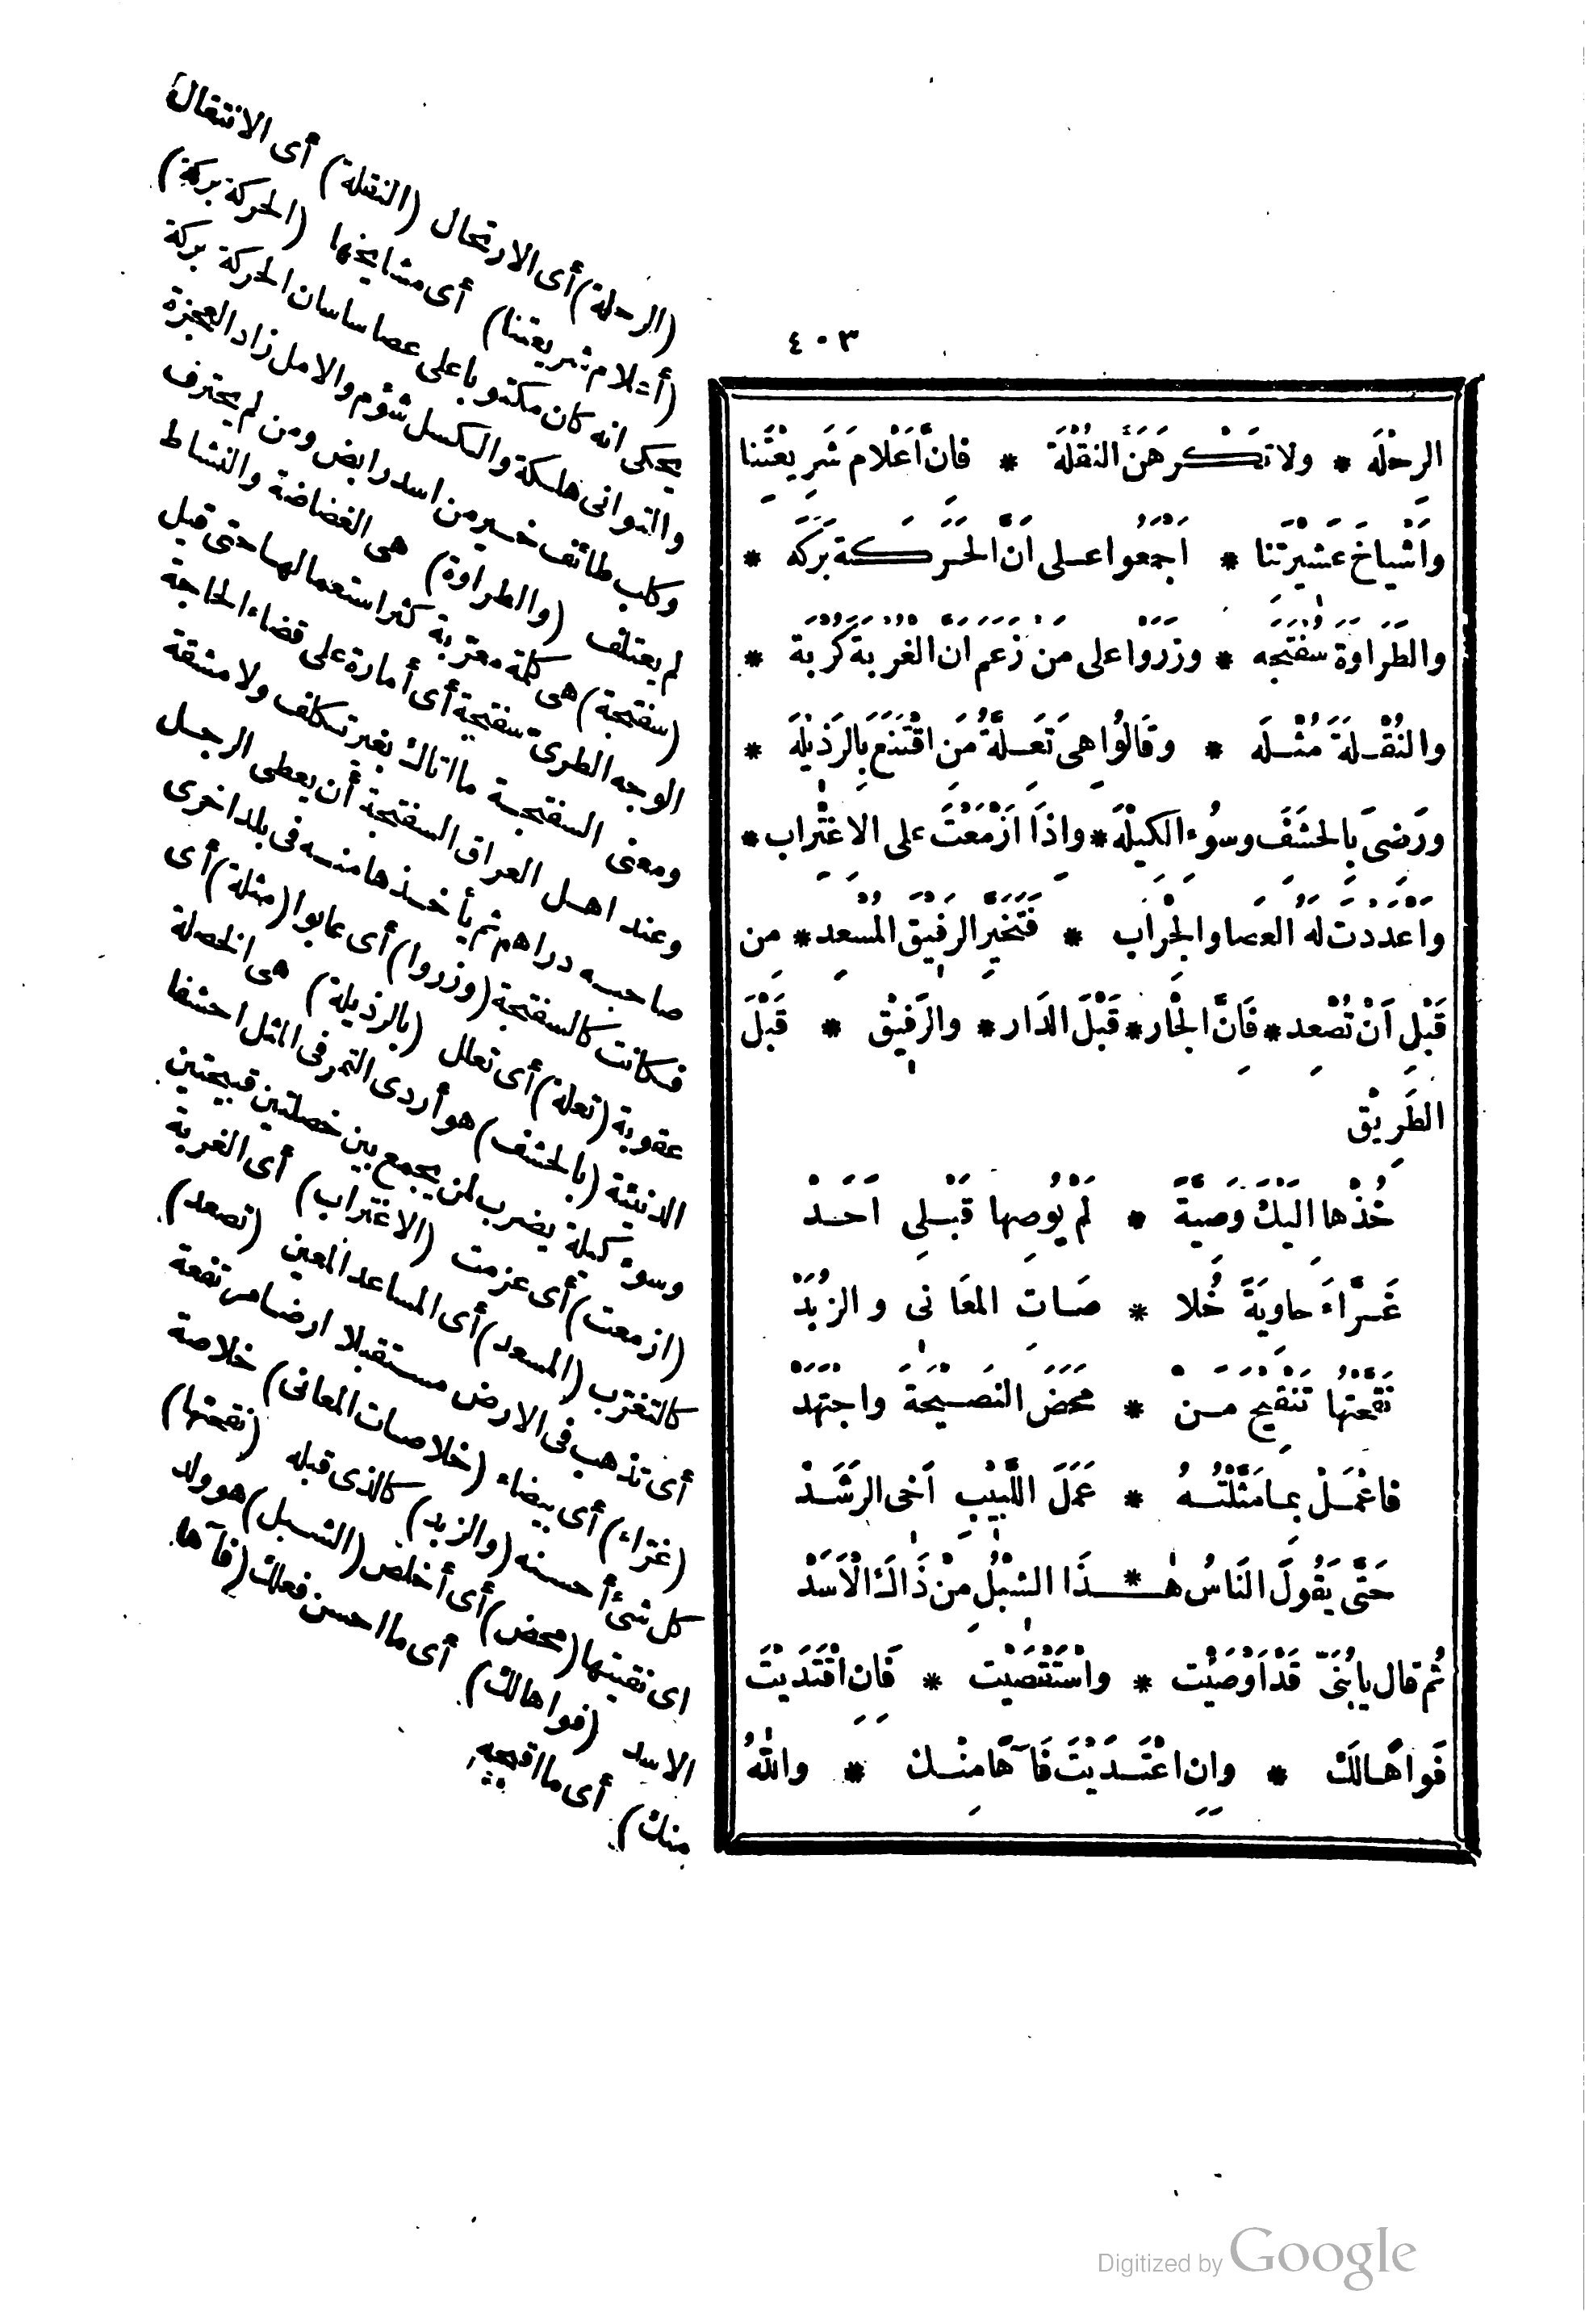 ٤٠٣
الرِحْلَه * ولا تَكْرَهَنَّ النُقْلَةَ * فَاِنَّ اَعْلامَ شَرِيعَتِنا
واَشْياخَ عَشِيرَتِنا * اَجْمَعُوا عــلى اَنَّ الحَرَكَةَ بَرَكَه *
والطَرَاوَةَ سُفْتَجَه * وزَرَوْا على مَنْ زَعَمَ اَنَّ الغُرْبَةَ كُرْبَة *
والنُقْــلَةَ مُثْــلَه * وقَالُوا هِىَ تَعِــلَّةُ مَنِ اقْتَنَعَ بِالرَذِيْلَه *
ورَضِىَ بِالحَشَفِ وسُوْءِ الكِيلَه * واِذَا اَزْمَعْتَ على الاِغْتِراب *
واَعْدَدْتَ لَهُ العَصا والجِراب * فَتَخَيَّرِ الرَفِيْقَ المُسْعِد * مِن
قَبْلِ اَنْ تُصْعِد * فَاِنَّ الجَار * قَبْلَ الدَار * والرَفِيْق * قَبْلَ
الطَرِيْق
خُذْها اِلَيْكَ وَصِيَّةً * لَمْ يُوصِها قَبْــلِى اَحَــدْ
غَــرَّاءَ حاوِيَةً خُلا * صَــاتِ المَعَانِى والزُبَدْ
نَقَّحْتُها تَنْقِيحَ مَــنْ * مَحَضَ النَصِــيْحَةَ واجْتَهَدْ
فاعْمَــلْ بِمــا مَثَّلْتُــهُ * عَمَلَ اللَّبِيْبِ اَخِى الرَشَــدْ
حَتَّى يَقُولَ النَاسُ هٰــ * ــذَا الشِبْلُ مِنْ ذَاكَ الْاَسَدْ
ثُمّ قال يا بُنَىَّ قَدْ اَوْصَيْت * واسْتَقْصَيْت * فَاِنِ اقْتَدَيْتَ
فَواهًــا لَكَ * واِنِ اعْتَــدَيْتَ فَآهًا مِنْــك * واللهُ
(الرحلة) أى الارتحال (النقلة) أى الانتقال
(أعلام شريعتنا) أى مشايخها (الحركة بركة)
يحكى انه كان مكتوبا على عصا ساسان الحركة بركة
والتوانى هلكة والكسل شؤم والامل زاد العجزة
وكلب طائف خــير من اسد رابض ومن لم يحترف
لم يعتلف (والطراوة) هى الغضاضة والنشاط
(سفتجة) هى كلمة معرّبة كثر استعمالها حتى قيل
الوجه الطرىّ سفتجة أى أمارة على قضاء الحاجة
ومعنى السفتجــة ما اتاك بغير تكلف ولا مشقة
وعند اهــل العراق السفتجة أن يعطى الرجــل
صاحبــه دراهم ثم يأخــذها منــه فى بلد اخرى
فكانت كالسفتجة (وزروا) أى عابوا (مثلة) أى
عقوبة (تعلة) أى تعلل (بالرذيلة) هى الخصلة
الدنيئة (بالحشف) هو أردى التمر فى المثل احشفا
وسوءَ كيلة يضرب لمن يجمع بين خصلتين قبيحتين
(ازمعت) أى عزمت (الاغتراب) أى الغربة
كالتغرّب (المسعد) أى المساعد المعين (تصعد)
أى تذهب فى الارض مستقبلا ارضا مرتفعة
(غرّاء) أى بيضاء (خلاصات المعانى) خلاصة
كل شئ أحسنه (والزبد) كالذى قبله (نقحتها)
اى نقيتها (محض) أى أخلص (الشــبل) هو ولد
الاسد (فواها لك) أى ما احسن فعلك (فآها
منك) أى ما اقبحه
Digitized by Google